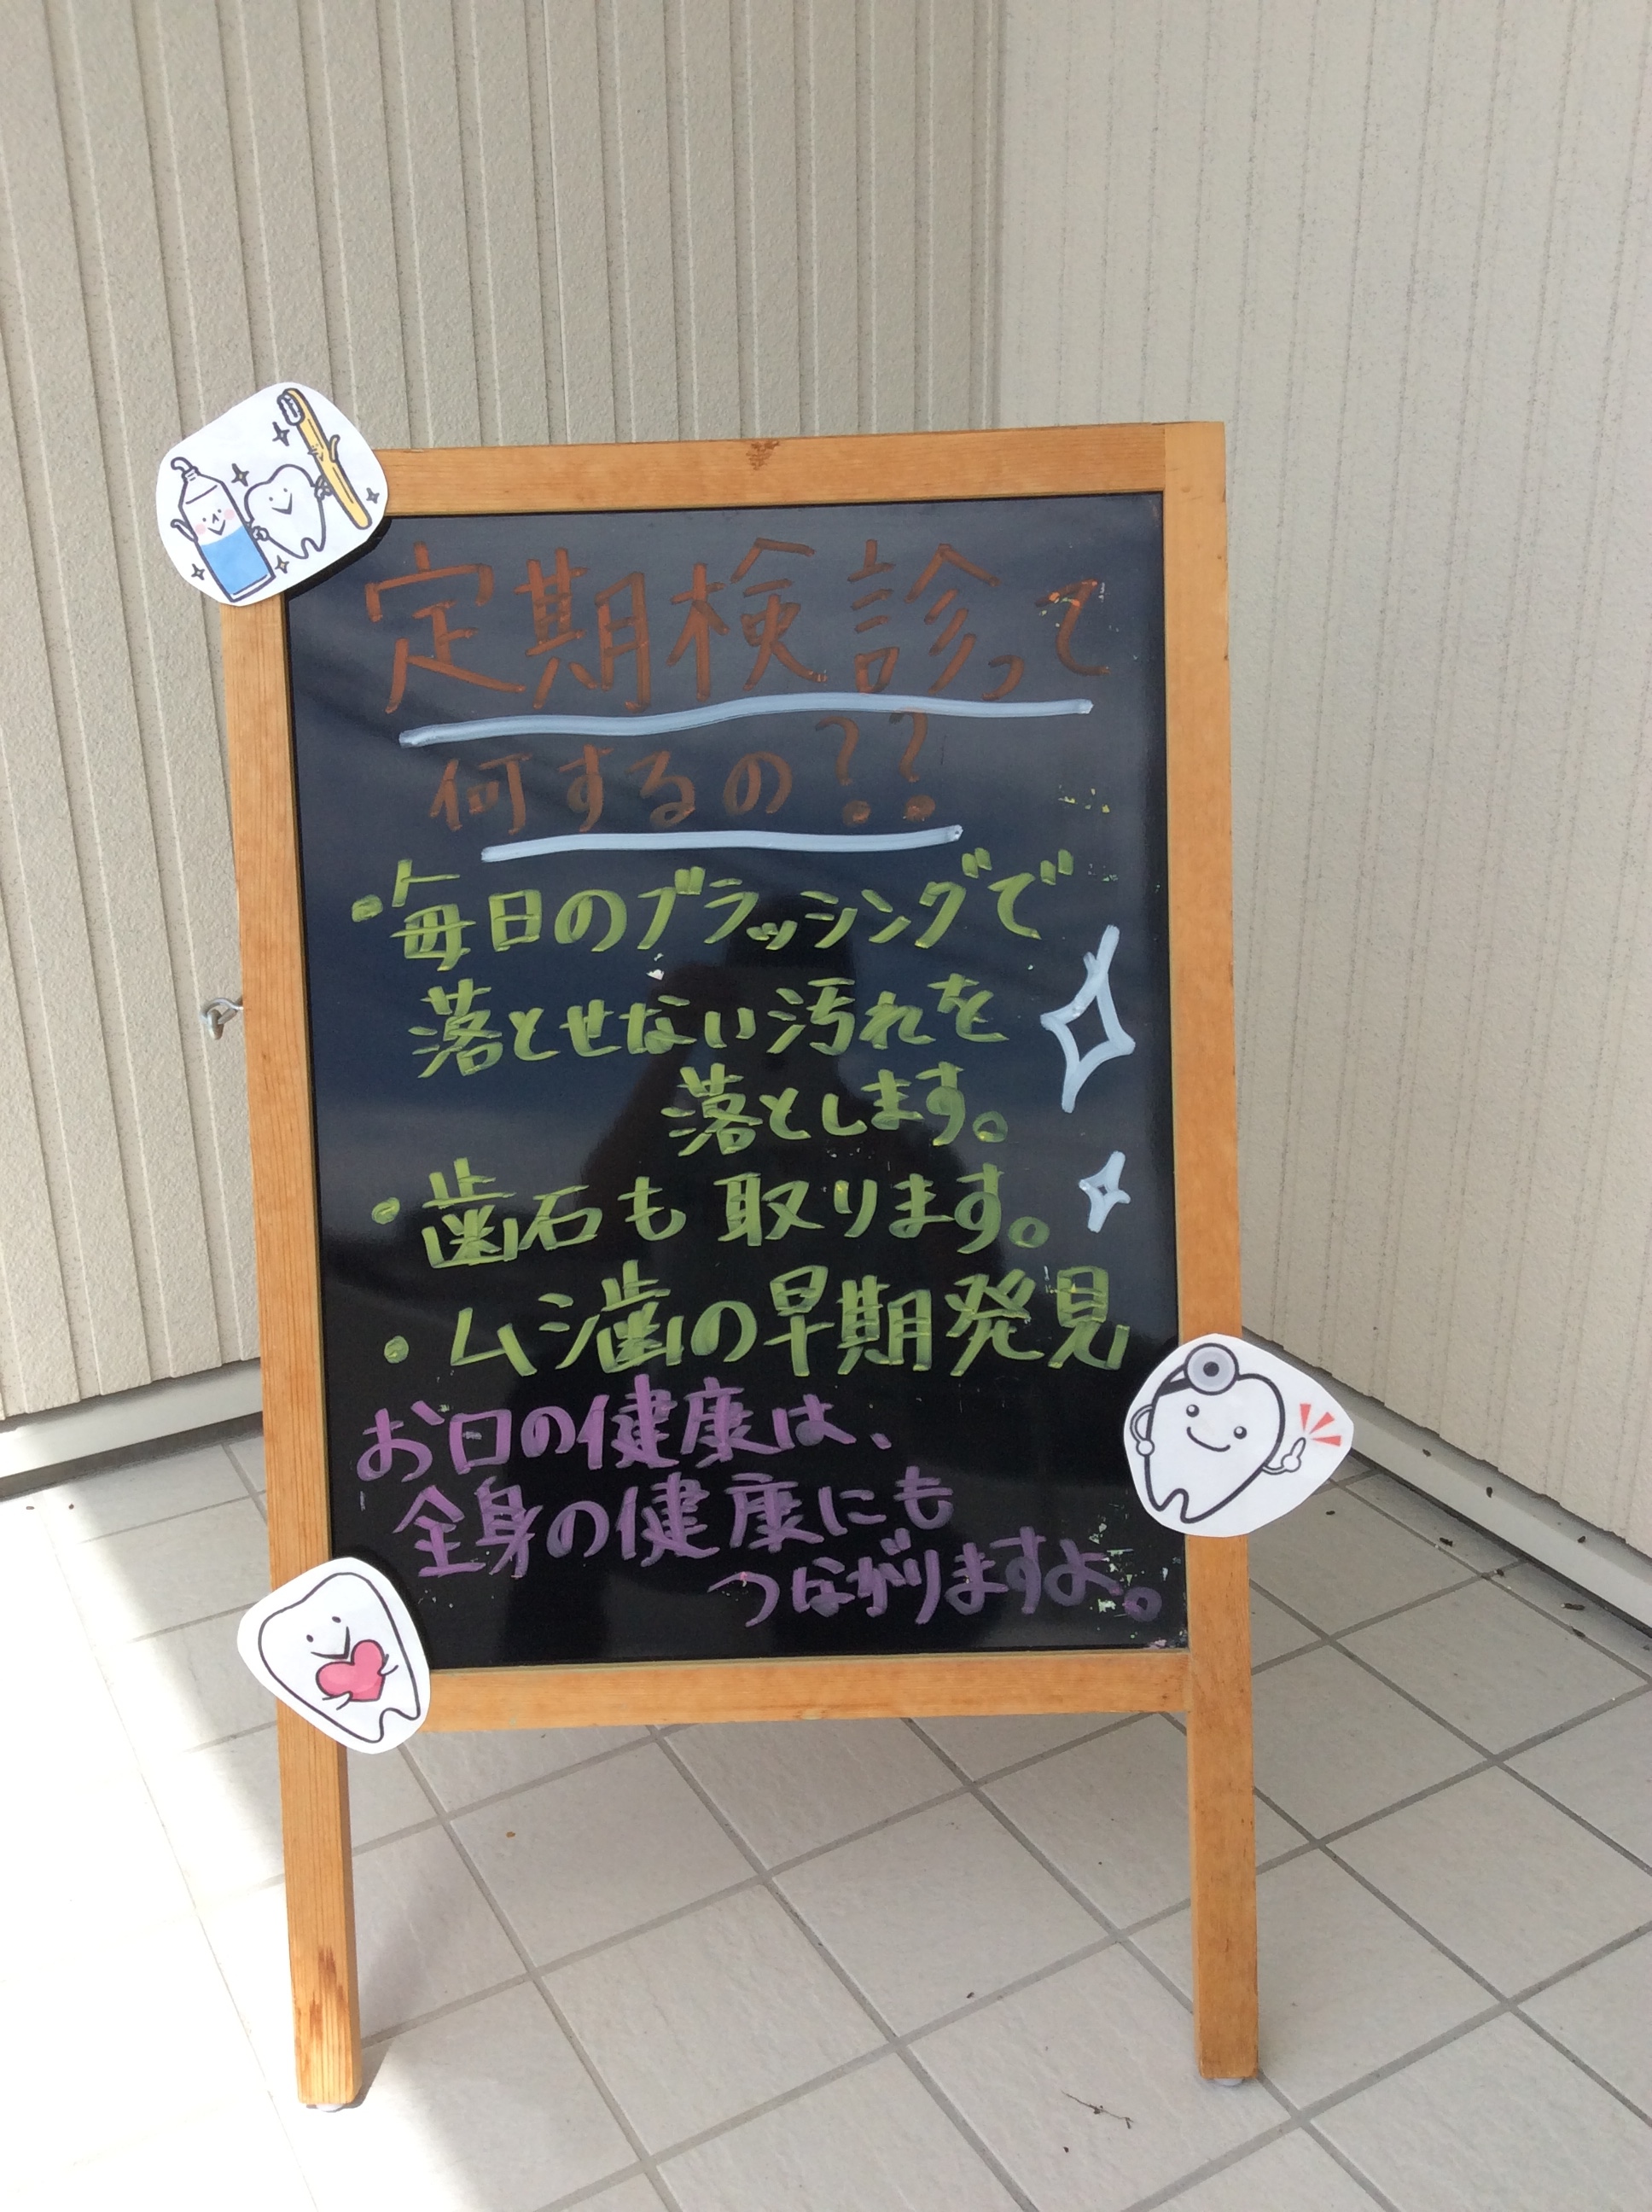 定期検診って
何するの??
・毎日のブラッシングで
落とせない汚れを
落とします。
・歯石も取ります。
・ムシ歯の早期発見
お口の健康は、
全身の健康にも
つながりますよ。